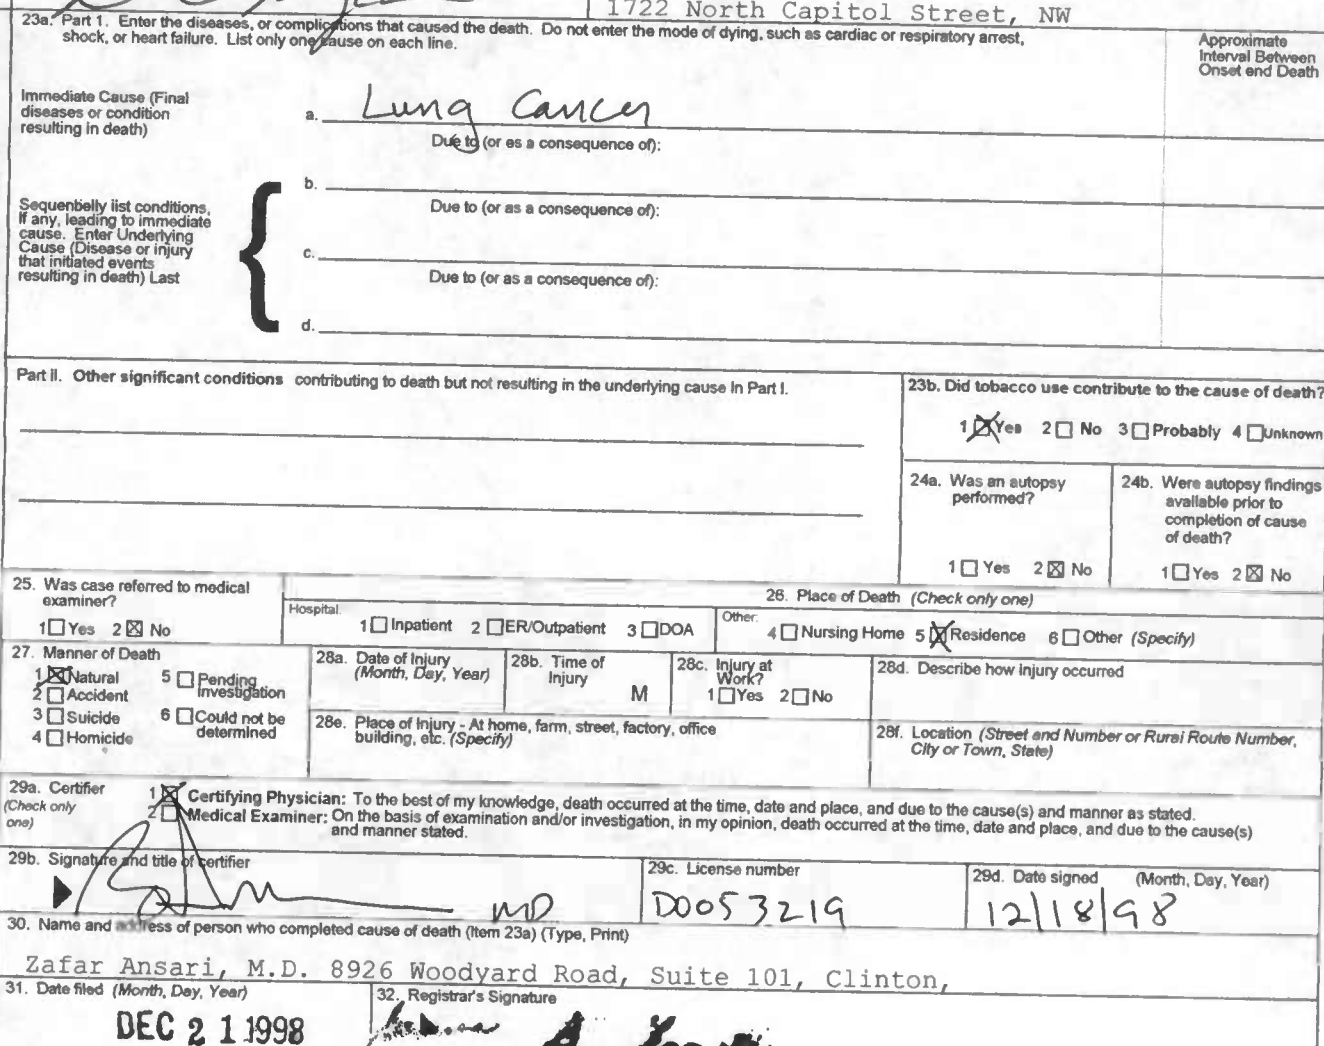 1722 North Capitol Street, NW
23a. Part 1. Enter the diseases, or complications that caused the death. Do not enter the mode of dying, such as cardiac or respiratory arrest,
shock, or heart failure. List only one cause on each line.
Approximate
Interval Between
Onset end Death
Immediate Cause (Final
diseases or condition
resulting in death)
a. Lung Cancer
Due to (or es a consequence of):
b.
Due to (or as a consequence of):
Sequentielly list conditions,
If any, leading to immediate
cause. Enter Underlying
Cause (Disease or injury
that initiated events
resulting in death) Last
c.
Due to (or as a consequence of):
d.
Part II. Other significant conditions contributing to death but not resulting in the underlying cause In Part I.
23b. Did tobacco use contribute to the cause of death?
1 ☒ Yes 2 ☐ No 3 ☐ Probably 4 ☐ Unknown
24a. Was an autopsy
performed?
1 ☐ Yes 2 ☒ No
24b. Were autopsy findings
available prior to
completion of cause
of death?
1 ☐ Yes 2 ☒ No
25. Was case referred to medical
examiner?
1 ☐ Yes 2 ☒ No
26. Place of Death (Check only one)
Hospital: 1 ☐ Inpatient 2 ☐ ER/Outpatient 3 ☐ DOA Other: 4 ☐ Nursing Home 5 ☒ Residence 6 ☐ Other (Specify)
27. Manner of Death
1 ☒ Natural 5 ☐ Pending
Investigation
2 ☐ Accident
3 ☐ Suicide 6 ☐ Could not be
determined
4 ☐ Homicide
28a. Date of Injury
(Month, Day, Year)
28b. Time of
Injury
M
28c. Injury at
Work?
1 ☐ Yes 2 ☐ No
28d. Describe how injury occurred
28e. Place of Injury - At home, farm, street, factory, office
building, etc. (Specify)
28f. Location (Street and Number or Rural Route Number,
City or Town, State)
29a. Certifier
(Check only
one)
1 ☒ Certifying Physician: To the best of my knowledge, death occurred at the time, date and place, and due to the cause(s) and manner as stated.
2 ☐ Medical Examiner: On the basis of examination and/or investigation, in my opinion, death occurred at the time, date and place, and due to the cause(s)
and manner stated.
29b. Signature and title of certifier
MD
29c. License number
D0053219
29d. Date signed (Month, Day, Year)
12/18/98
30. Name and address of person who completed cause of death (Item 23a) (Type, Print)
Zafar Ansari, M.D. 8926 Woodyard Road, Suite 101, Clinton,
31. Date filed (Month, Day, Year)
DEC 21 1998
32. Registrar's Signature